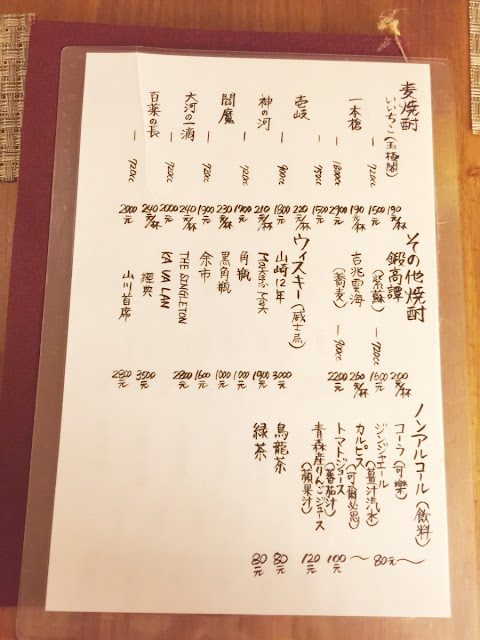 麦焼酎
いいちこ(玉極閣) ー 720cc 190元/杯 1500元
一本槍 ー 1800cc 190元/杯 2900元
壱岐 ー 750cc 1500元 220元/杯
神の河 ー 900cc 1800元 210元/杯
閻魔 ー 720cc 1700元 230元/杯
大河の一滴 ー 720cc 1900元 240元/杯
百薬の長 ー 720cc 2000元 240元/杯
その他焼酎
鍛高譚(紫蘇) ー 720cc 200元/杯 1600元
吉兆雲海(蕎麦) ー 900cc 260元/杯 2200元
ウィスキー(威士忌)
山崎12年 3000元
Maker's Mark 1900元
角瓶 1000元
黒角瓶 1000元
余市 1600元
THE SINGLETON 2800元
KAVALAN
經典 3500元
山川首席 2800元
ノンアルコール(飲料)
コーラ(可樂)
ジンジャエール(薑汁汽水) 80元〜
カルピス(可爾必思)
トマトジュース(蕃茄汁) 100元〜
青森産りんごジュース(蘋果汁) 120元
烏龍茶 80元
緑茶 80元